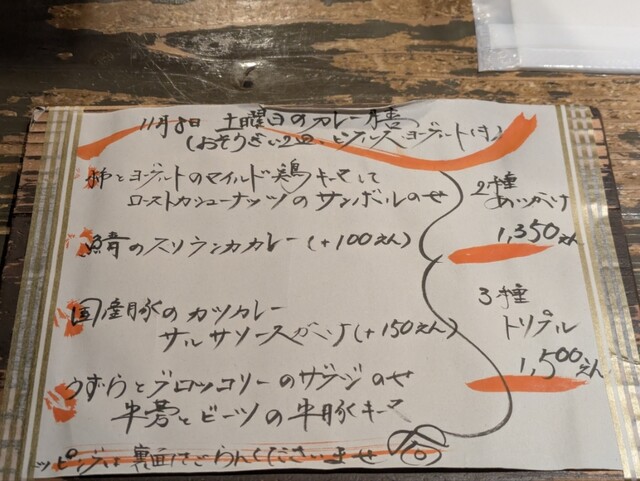 11月8日 土曜日のカレー膳
(おそうざい2皿、ピクルス、ヨーグルト付)
柿とヨーグルトのマイルド鶏キーマ
ローストカシューナッツのサンボルのせ
2種
あいがけ
1,350えん
鯖のスリランカカレー(+100えん)
国産豚のカツカレー
サルサソースがけ(+150えん)
3種
トリプル
1,500えん
うずらとブロッコリーのサブジのせ
牛蒡とビーツの牛豚キーマ
トッピングは裏面をごらんくださいませ